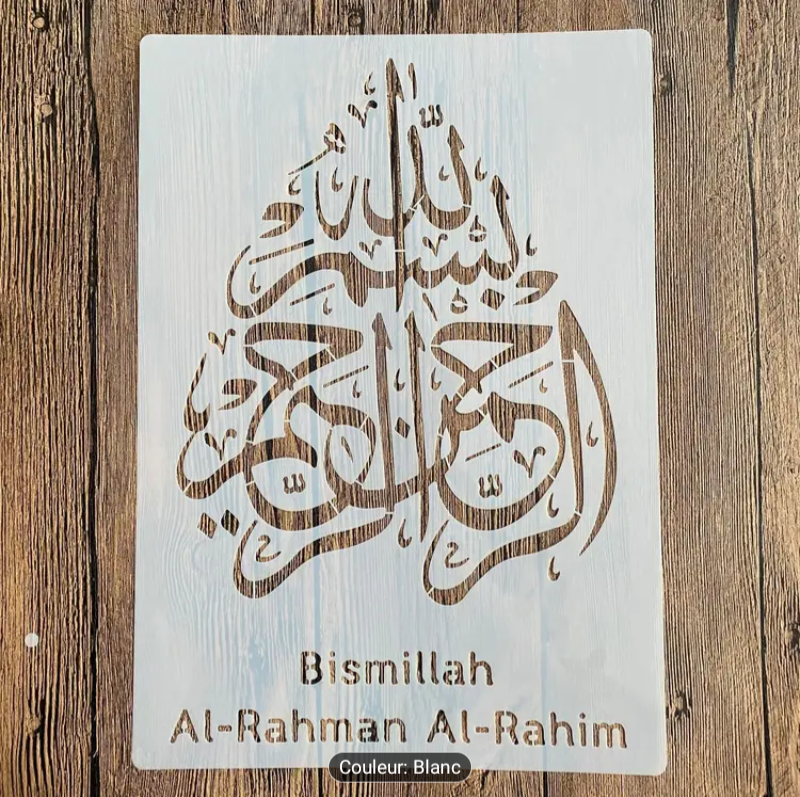 بسم الله
الرحمن الرحيم
Bismillah
Al-Rahman Al-Rahim
Couleur: Blanc